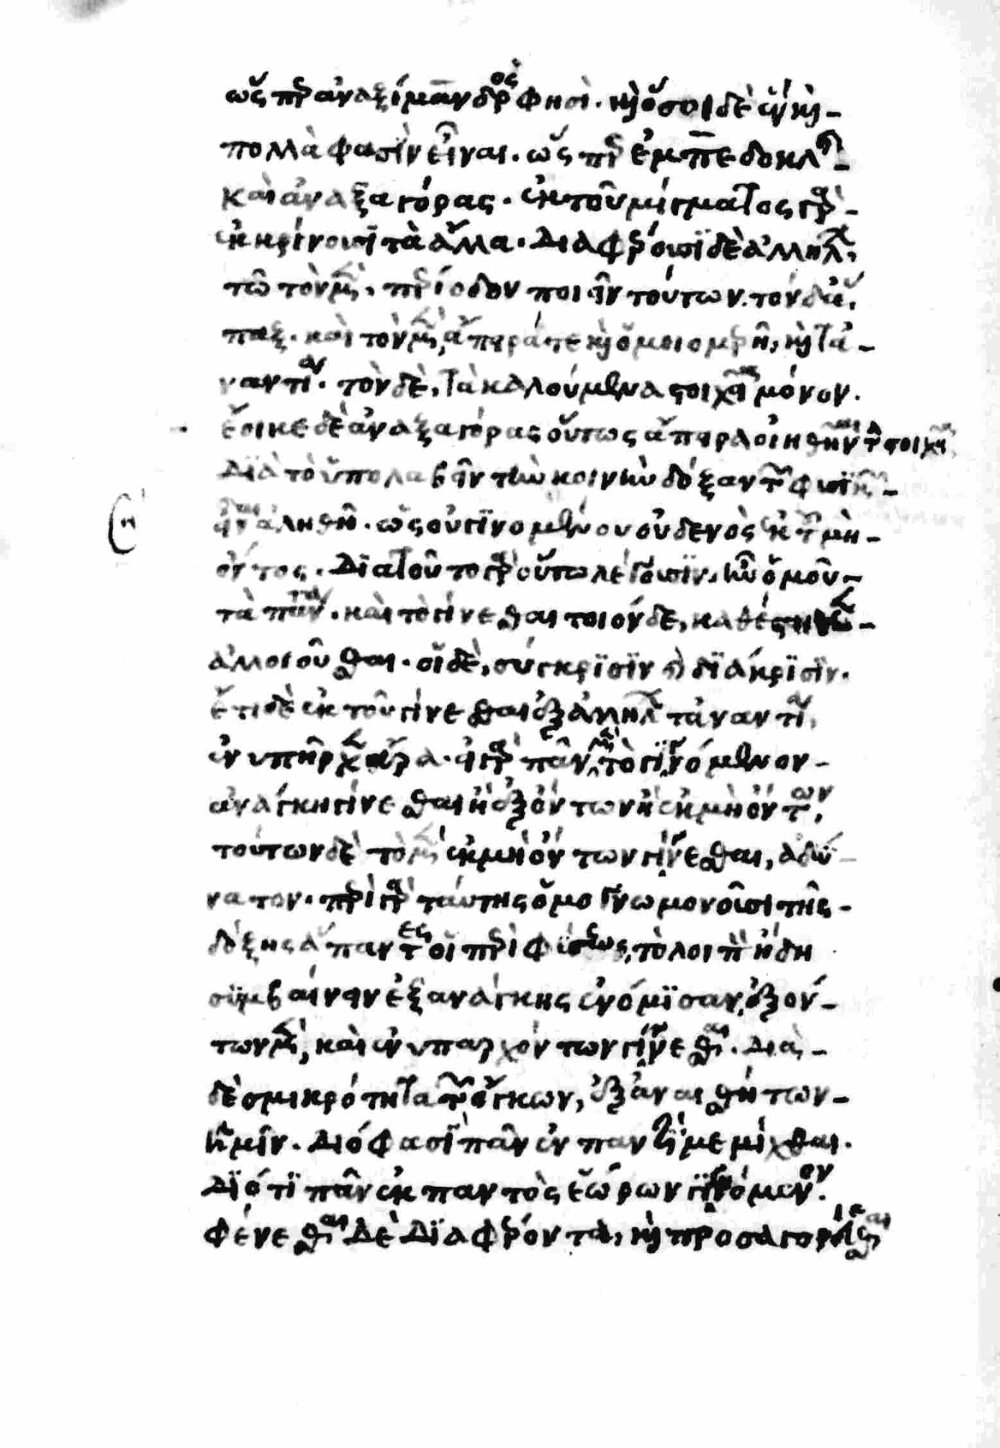 ὥσπερ ἀναξίμανδρος φησὶ. καὶ ὅσοι δὲ ἓν καὶ
πολλὰ φασὶν εἶναι. ὥσπερ ἐμπεδοκλῆς
καὶ ἀναξαγόρας. ἐκ τοῦ μίγματος γὰρ
ἐκκρίνουσι τὰ ἄλλα. διαφέρουσι δὲ ἀλλήλων
τῶ τὸν μὲν, περίοδον ποιεῖν τούτων. τὸν δὲ ἅ
παξ. καὶ τὸν μὲν, ἄπειρά τε καὶ ὁμοιομερῆ, καὶ τἀ
ναντία. τὸν δὲ, τὰ καλούμενα στοιχεῖα μόνον.
ἔοικε δὲ ἀναξαγόρας οὕτως ἄπειρα οἰηθῆναι τὰ στοιχεῖα
διὰ τὸ ὑπολαβεῖν τὴν κοινὴν δόξαν τῶν φυσικῶν
εἶναι ἀληθῆ. ὡς οὐ γινομένου οὐδενὸς ἐκ τοῦ μὴ
ὄντος. διὰ τοῦτο γὰρ οὕτω λέγουσιν, ἦν ὁμοῦ
τὰ πάντα. καὶ τὸ γίνεσθαι τοιόνδε, καθέστηκεν
ἀλλοιοῦσθαι. οἱ δὲ, σύγκρισιν καὶ διάκρισιν.
ἔτι δὲ ἐκ τοῦ γίνεσθαι ἐξ ἀλλήλων τἀναντία,
ἐνυπῆρχεν ἄρα. εἰ γὰρ πᾶν μὲν τὸ γινόμενον
ἀνάγκη γίνεσθαι ἢ ἐξ ὄντων ἢ ἐκ μὴ ὄντων,
τούτων δὲ τὸ μὲν ἐκ μὴ ὄντων γίνεσθαι, ἀδύ
νατον. περὶ γὰρ ταύτης ὁμογνωμονοῦσι τῆς
δόξης ἅπαντες οἱ περὶ φύσεως, τὸ λοιπὸν ἤδη
συμβαίνειν ἐξ ἀνάγκης ἐνόμισαν, ἐξ ὄν
των μὲν, καὶ ἐνυπαρχόντων γίνεσθαι. διὰ
δὲ σμικρότητα τῶν ὄγκων, ἐξ ἀναισθήτων
ἡμῖν. διό φασι πᾶν ἐν παντὶ μεμίχθαι.
διότι πᾶν ἐκ παντὸς ἑώρων γινόμενον.
φαίνεσθαι δὲ διαφέροντα, καὶ προσαγορεύεσθαι